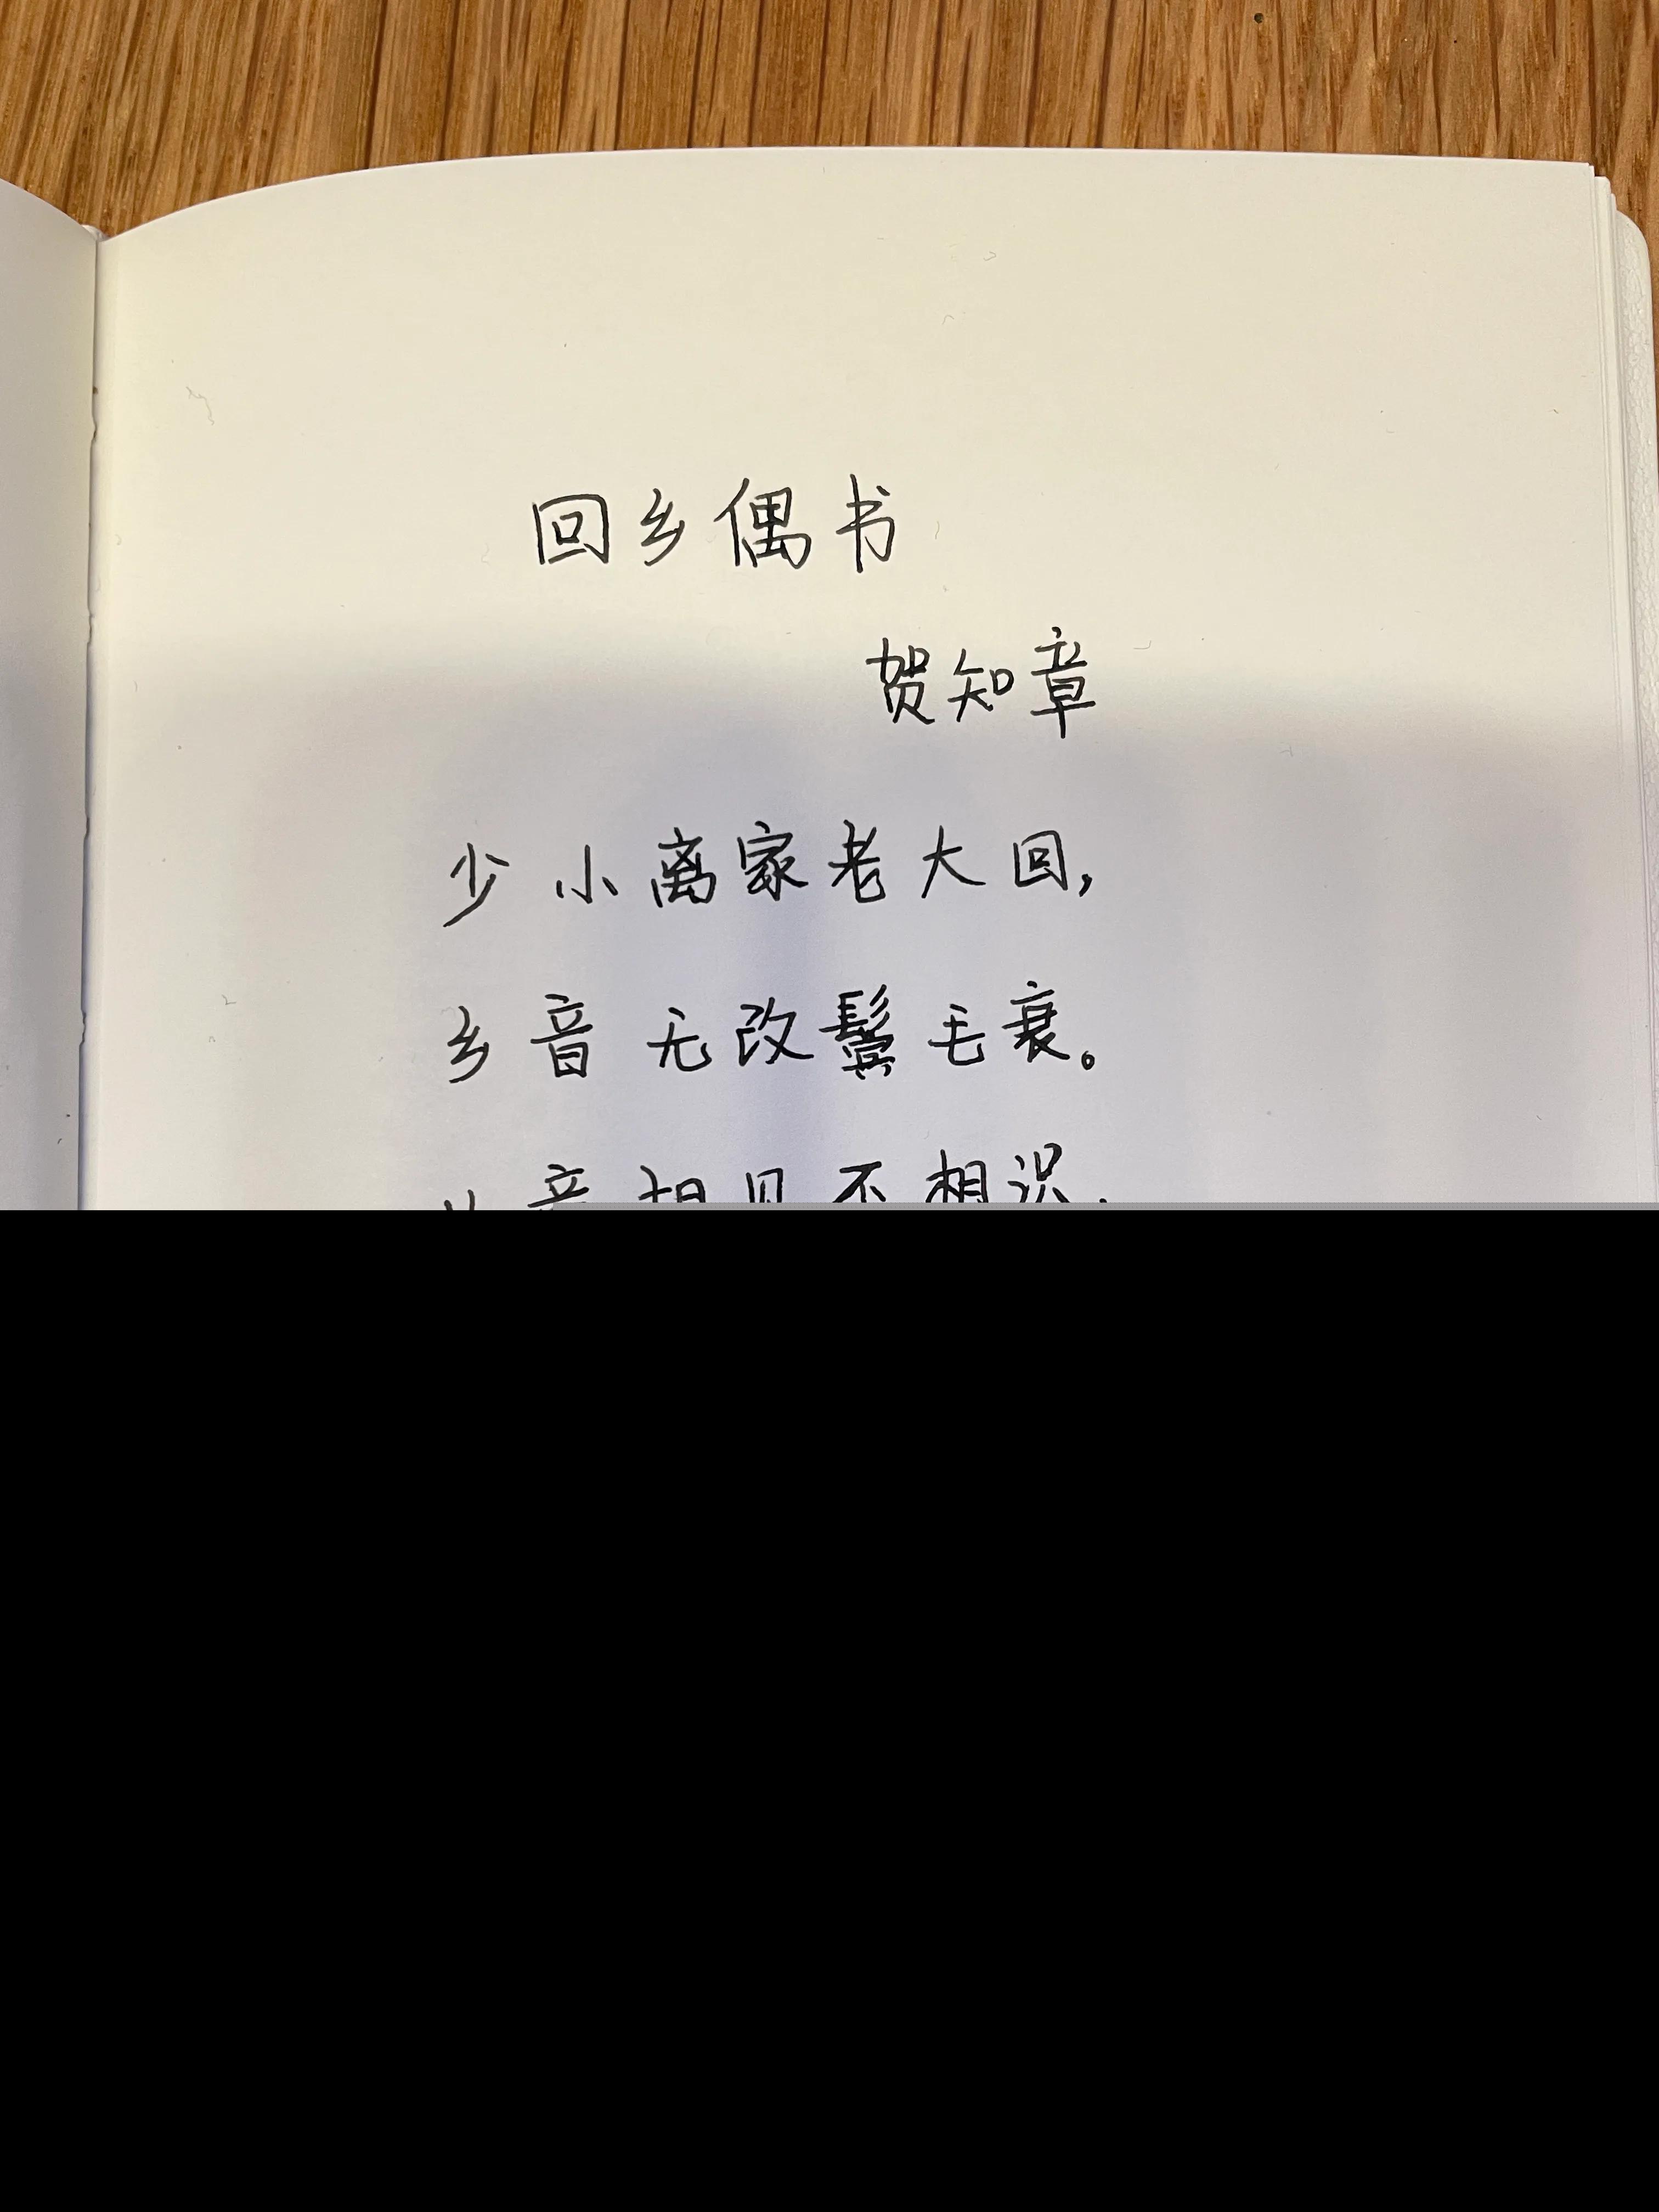 回乡偶书
贺知章
少小离家老大回,
乡音无改鬓毛衰。
相识